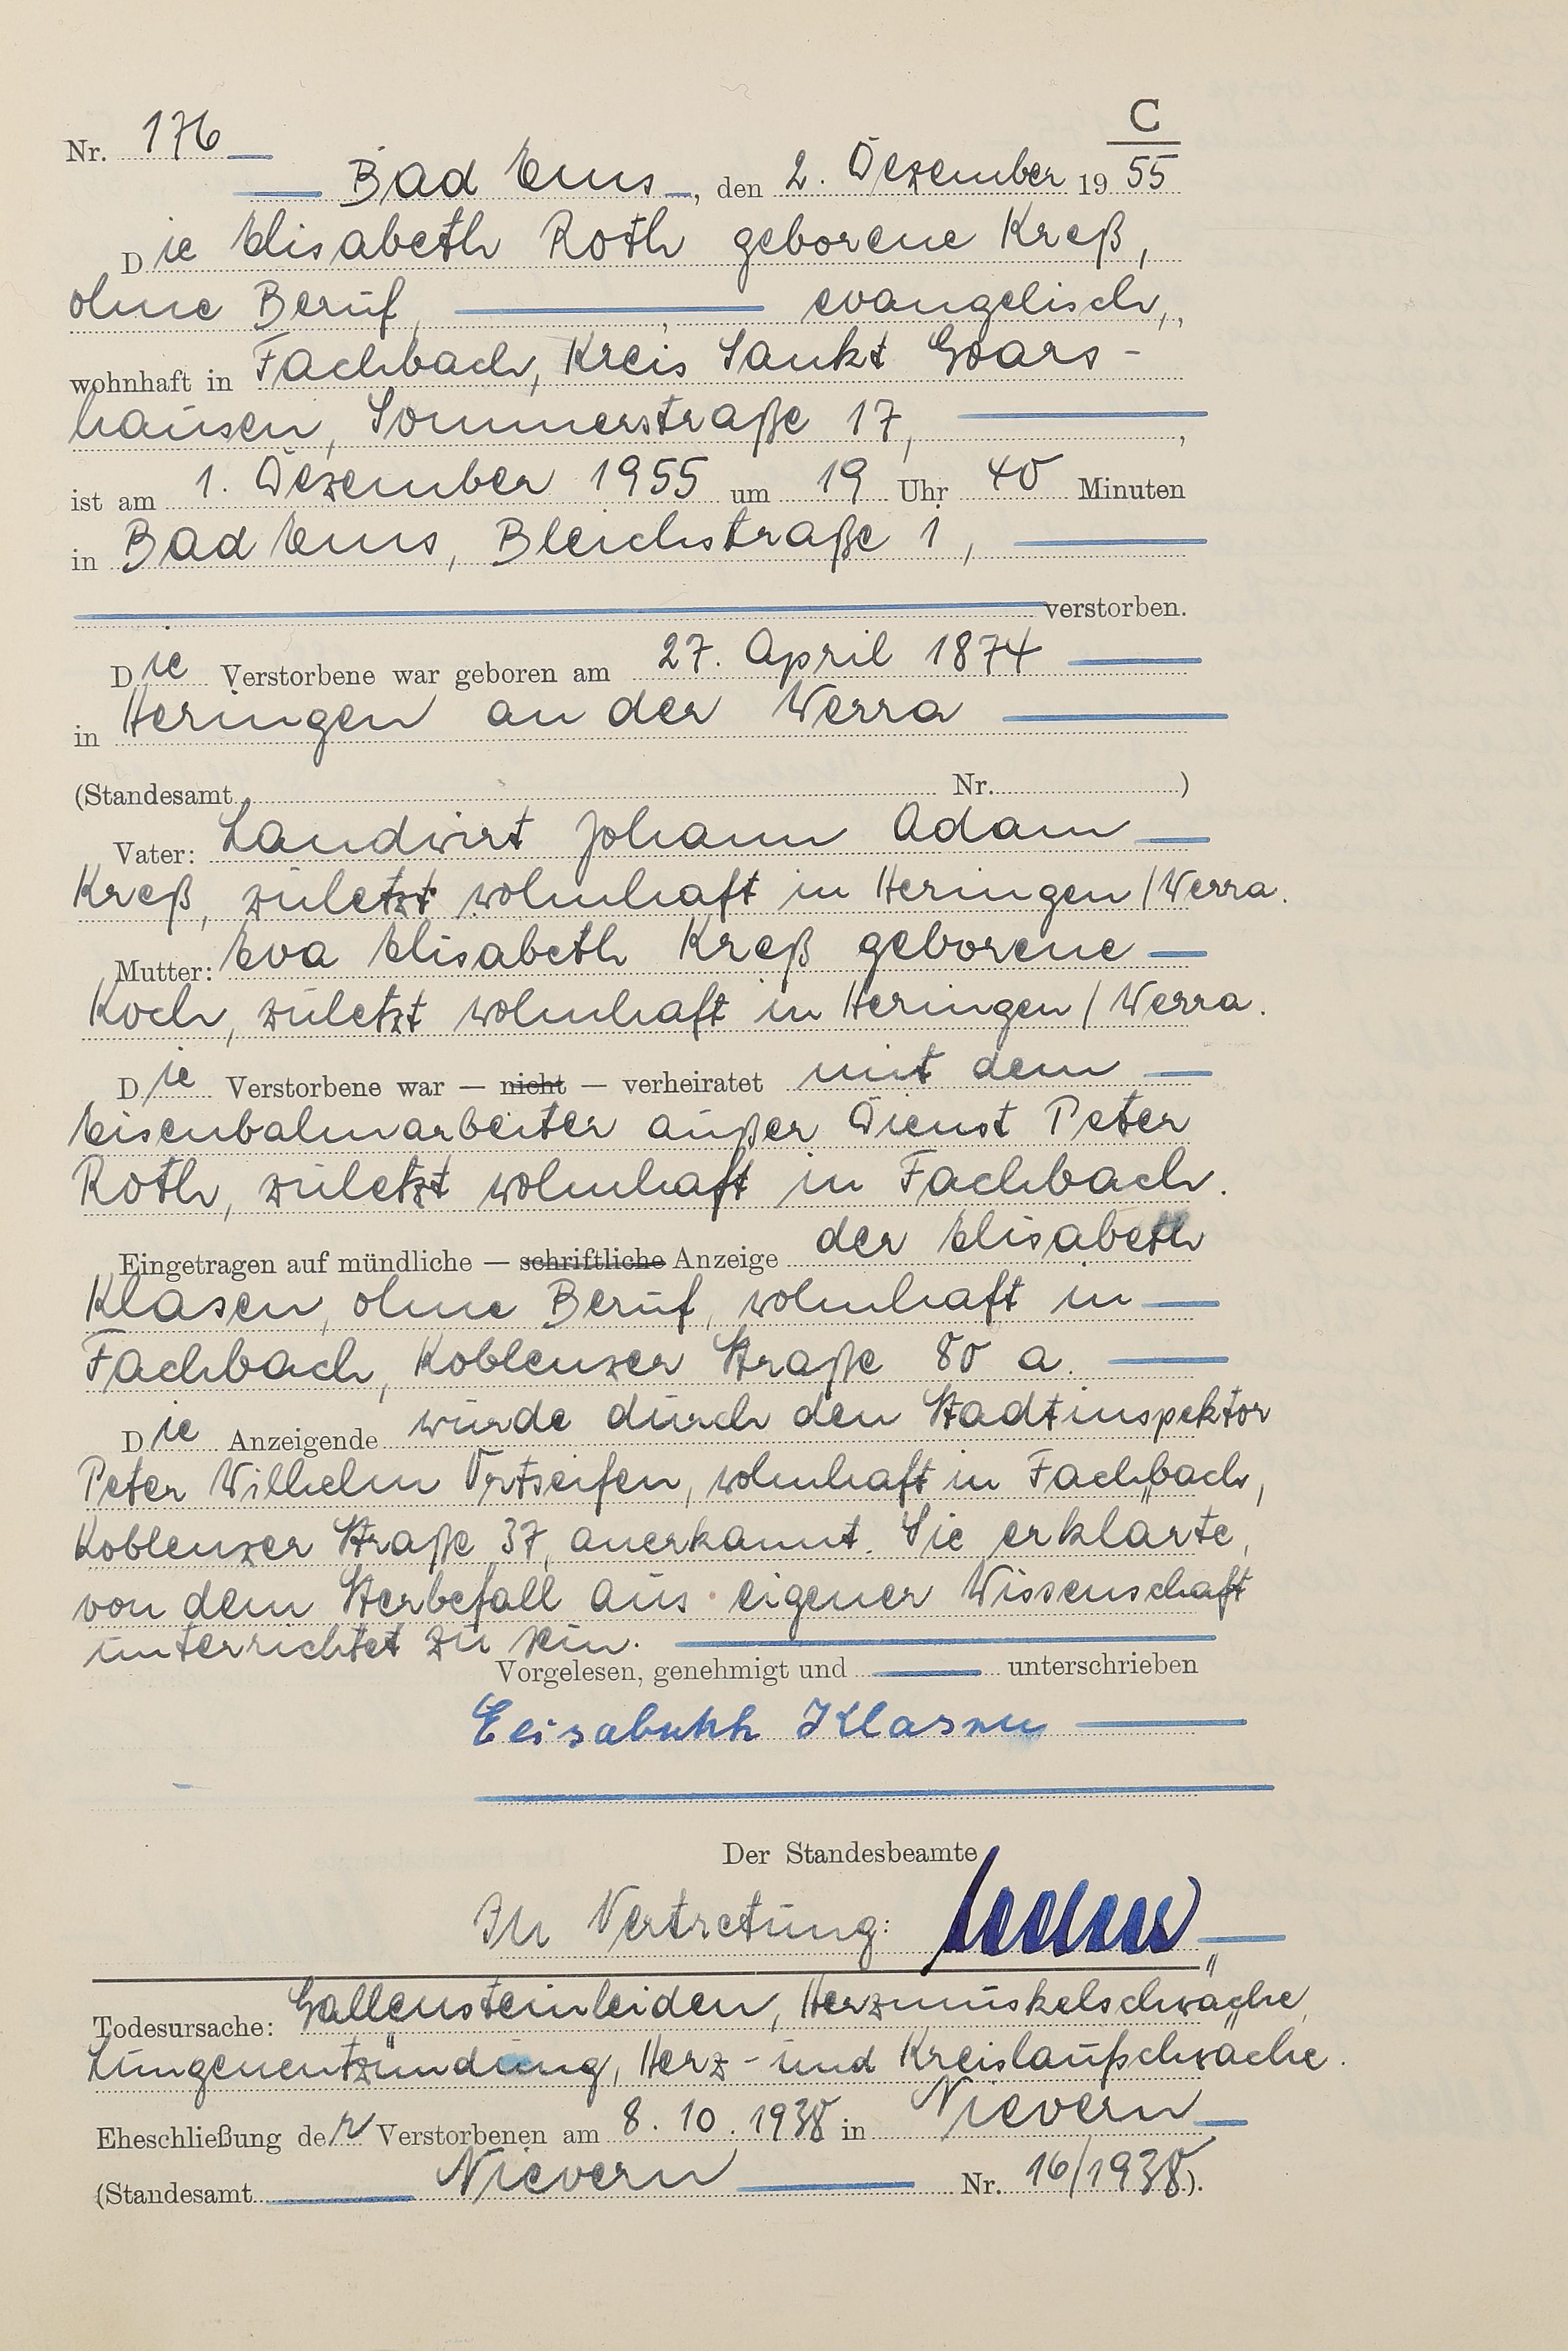 C
Nr. 176
Bad Ems, den 2. Dezember 19 55
Die Elisabeth Roth geborene Kreß,
ohne Beruf, , evangelisch,,
wohnhaft in Fachbach, Kreis Sankt Goars-
hausen, Sommerstraße 17, ,
ist am 1. Dezember 1955 um 19 Uhr 40 Minuten
in Bad Ems, Bleichstraße 1,
verstorben.
Die Verstorbene war geboren am 27. April 1874
in Heringen an der Werra
(Standesamt Nr. )
Vater: Landwirt Johann Adam
Kreß, zuletzt wohnhaft in Heringen/Werra.
Mutter: Eva Elisabeth Kreß geborene
Koch, zuletzt wohnhaft in Heringen/Werra.
Die Verstorbene war — nicht — verheiratet mit dem
Eisenbahnarbeiter außer Dienst Peter
Roth, zuletzt wohnhaft in Fachbach.
Eingetragen auf mündliche — schriftliche Anzeige der Elisabeth
Klasen, ohne Beruf, wohnhaft in
Fachbach, Koblenzer Straße 80 a.
Die Anzeigende wurde durch den Stadtinspektor
Peter Wilhelm Ortseifen, wohnhaft in Fachbach,
Koblenzer Straße 37, anerkannt. Sie erklärte,
von dem Sterbefall aus eigener Wissenschaft
unterrichtet zu sein.
Vorgelesen, genehmigt und unterschrieben
Elisabeth Klasen
Der Standesbeamte
In Vertretung:
Todesursache: Gallensteinleiden, Herzmuskelschwäche,
Lungenentzündung, Herz- und Kreislaufschwäche.
Eheschließung der Verstorbenen am 8. 10. 1938 in Nievern
(Standesamt Nievern Nr. 16/1938).